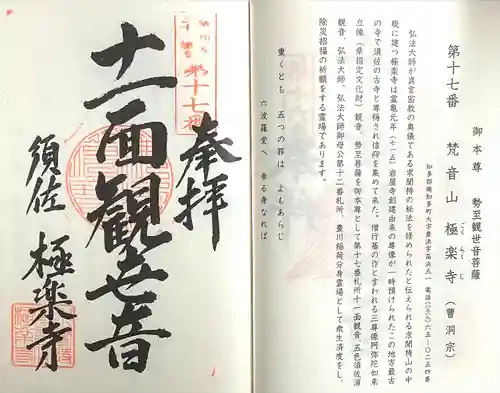 第十七番 梵音山 極楽寺（曹洞宗）
ごくらくじ
御本尊 勢至観世音菩薩
知多郡南知多町大字豊浜字高浜五一 電話(〇五六九)六五―〇二五四番
弘法大師が真言密教の奥儀である求聞持の秘法を修められたと伝えられる求聞持山の中
腹に建つ極楽寺は霊亀元年（七一五）岩屋寺創建由来の尊像が一時預けられたこの地方最古
の寺で須佐の古寺と尊称され信仰を集めて来た。僧行基の作と言われる三尊像阿弥陀如来
立像（県指定文化財）観音、勢至菩薩を御本尊として第十七番札所十一面観音、五色須佐湾
観音、弘法大師、弘法大師御母公第十二番札所、豊川稲荷分身霊場として衆生済度をし、
除災招福の祈願をする霊場であります。
重くとも 五つの罪は よもあらじ
六波羅堂へ 参る身なれば
奉拝
第十七番
十一面観世音
須佐 極楽寺